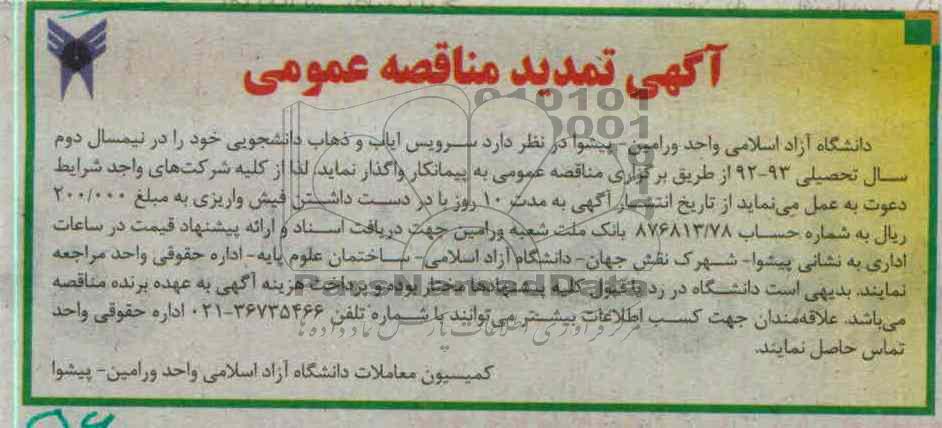 آگهی تمدید مناقصه عمومی
دانشگاه آزاد اسلامی واحد ورامین- پیشوا در نظر دارد سرویس ایاب و ذهاب دانشجویی خود را در نیمسال دوم
سال تحصیلی ۹۳-۹۲ از طریق برگزاری مناقصه عمومی به پیمانکار واگذار نماید، لذا از کلیه شرکت‌های واجد شرایط
دعوت به عمل می‌نماید از تاریخ انتشار آگهی به مدت ۱۰ روز با در دست داشتن فیش واریزی به مبلغ ۲۰۰/۰۰۰
ریال به شماره حساب ۸۷۶۸۱۳/۷۸ بانک ملت شعبه ورامین جهت دریافت اسناد و ارائه پیشنهاد قیمت در ساعات
اداری به نشانی پیشوا- شهرک نقش جهان- دانشگاه آزاد اسلامی- ساختمان علوم پایه- اداره حقوقی واحد مراجعه
نمایند. بدیهی است دانشگاه در رد یا قبول کلیه پیشنهادها مختار بوده و پرداخت هزینه آگهی به عهده برنده مناقصه
می‌باشد. علاقه‌مندان جهت کسب اطلاعات بیشتر می‌توانند با شماره تلفن ۳۶۷۳۵۴۶۶-۰۲۱ اداره حقوقی واحد
تماس حاصل نمایند.
کمیسیون معاملات دانشگاه آزاد اسلامی واحد ورامین- پیشوا
ParsNamadData